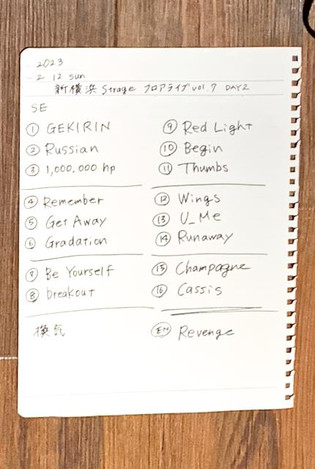 2023
2 12 sun
新横浜 Strage フロアライブ vol.7 DAY2
SE
① GEKIRIN
② Russian
③ 1,000,000 hp
④ Remember
⑤ Get Away
⑥ Gradation
⑦ Be Yourself
⑧ breakout
換気
⑨ Red Light
⑩ Begin
⑪ Thumbs
⑫ Wings
⑬ U_Me
⑭ Runaway
⑮ Champagne
⑯ Cassis
EN Revenge